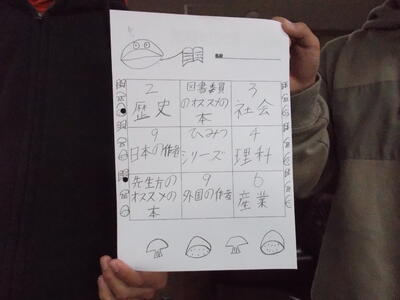 名前
2
歴史
図書委員
のオススメの
本
3
社会
9
日本の作者
ひみつ
シリーズ
4
理科
先生方の
オススメの
本
9
外国の作者
6
産業